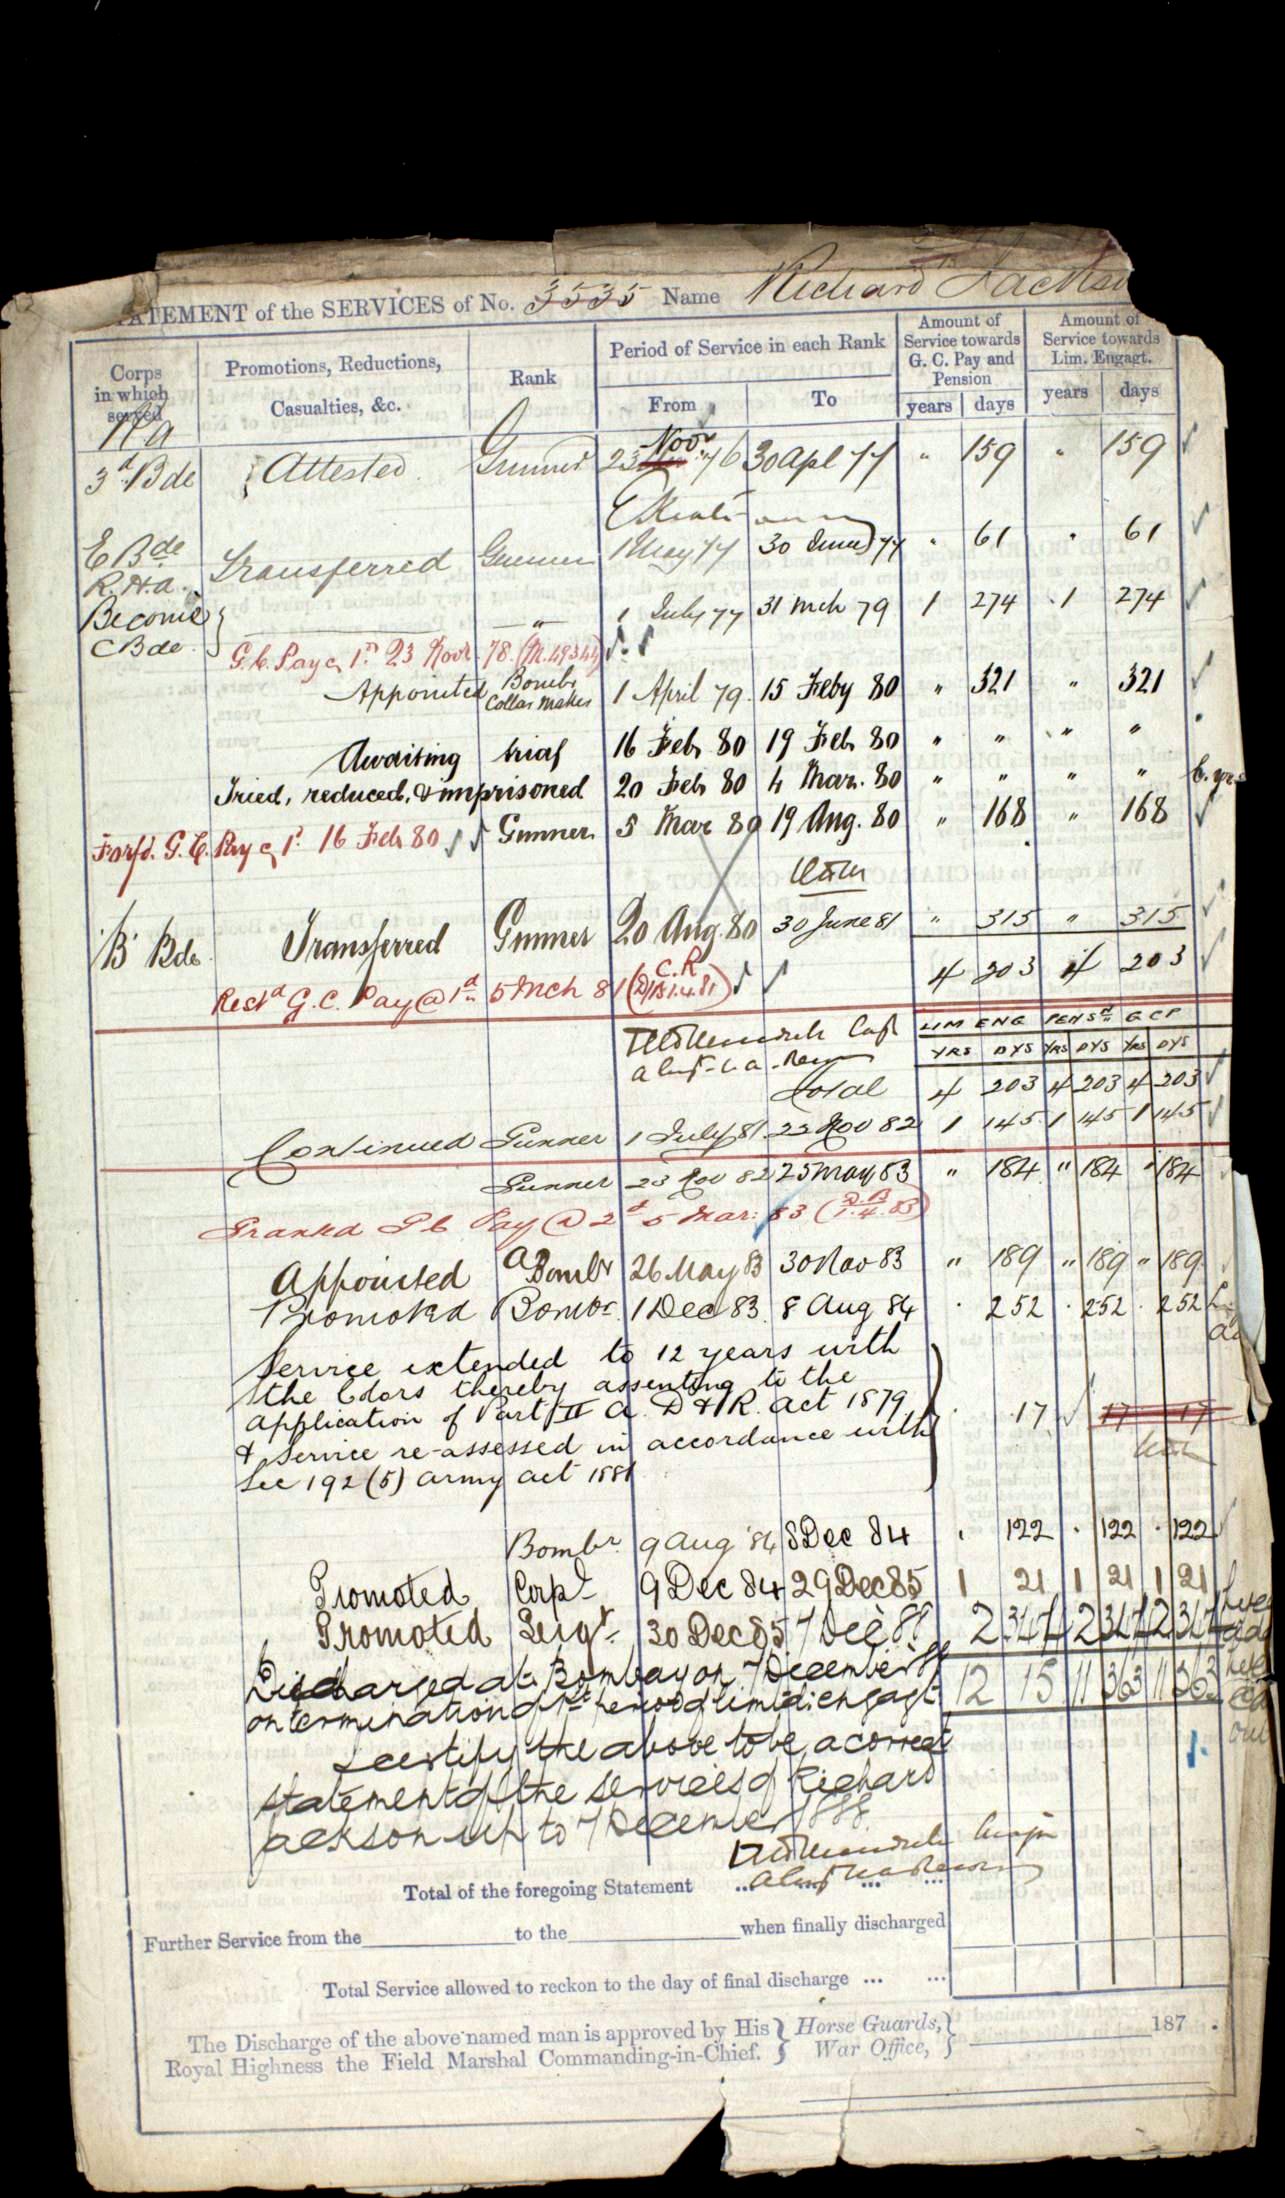 STATEMENT of the SERVICES of No. 3535 Name Richard Jackson
Corps in which served
Promotions, Reductions, Casualties, &c.
Rank
Period of Service in each Rank
From
To
Amount of Service towards G. C. Pay and Pension
years days
Amount of Service towards Lim. Engagt.
years days
R A
3d Bde Attested Gunner 23 Novr 76 30 Apl 77 " 159 " 159
E Bde
R.H.A. Transferred Gunner 1 May 77 30 June 77 " 61 " 61
Become
C Bde " 1 July 77 31 Mch 79 1 274 1 274
G.C. Pay @ 1d 23 Novr. 78
Appointed Bombr Collar Maker 1 April 79 15 Feby 80 " 321 " 321
Awaiting trial 16 Feb 80 19 Feb 80 " " " "
Tried, reduced, & imprisoned 20 Feb 80 4 Mar. 80 " " " "
Gunner 5 Mar 80 19 Aug. 80 " 168 " 168
Forfd. G.C. Pay @ 1d 16 Feb 80
'B' Bde Transferred Gunner 20 Aug. 80 30 June 81 " 315 " 315
4 203 4 203
Restd G.C. Pay @ 1d 5 Mch 81
LIM ENG PENSn GCP
YRS DYS YRS DYS YRS DYS
Total 4 203 4 203 4 203
Continued Gunner 1 July 81 22 Nov 82 1 145 1 145 1 145
Gunner 23 Nov 82 25 May 83 " 184 " 184 " 184
Granted G C Pay @ 2d 5 Mar: 83
Appointed A Bombr 26 May 83 30 Nov 83 " 189 " 189 " 189
Promoted Bombr. 1 Dec 83 8 Aug 84 . 252 . 252 . 252
Service extended to 12 years with
the Colors thereby assenting to the
application of Part II A. D & R. Act 1879
& Service re-assessed in accordance with
Sec 192 (5) Army Act 1881
17 17 17
Bombr. 9 Aug '84 8 Dec 84 . 122 . 122 . 122
Promoted Corpl 9 Dec 84 29 Dec 85 1 21 1 21 1 21
Promoted Sergt. 30 Dec 85 7 Dec 88 2 347 2 347 2 347
Discharged at Bombay on 7 December 88 12 15 11 363 11 363
on termination of 1st period of limtd: engagt.
I certify the above to be a correct
statement of the services of Richard
Jackson up to 7 December 1888
Total of the foregoing Statement ... ... ...
Further Service from the to the when finally discharged
Total Service allowed to reckon to the day of final discharge ... ...
The Discharge of the above named man is approved by His } Horse Guards, }
Royal Highness the Field Marshal Commanding-in-Chief. } War Office, } 187 .